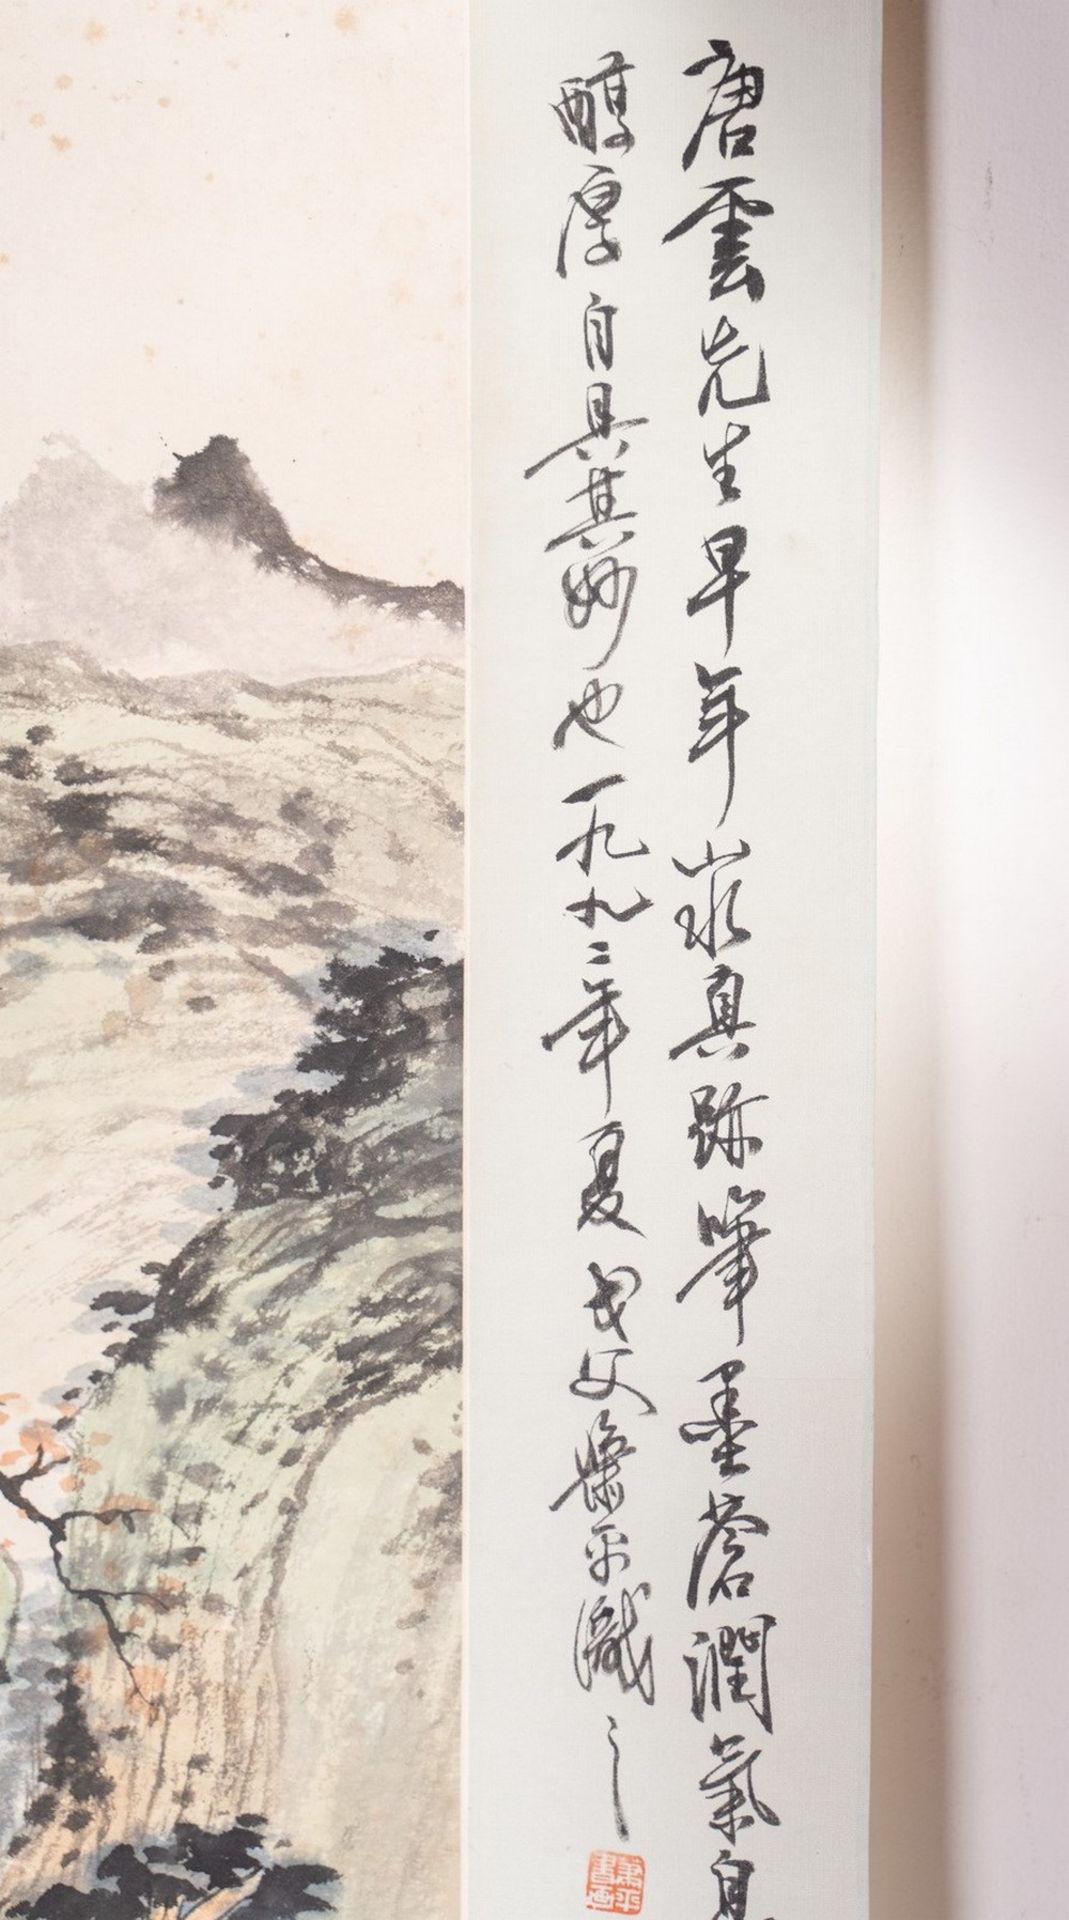 唐雲先生早年山水真跡筆墨蒼潤氣息
醇厚自具其妙也一九九二年夏戈父蕭平識之
蕭平書画